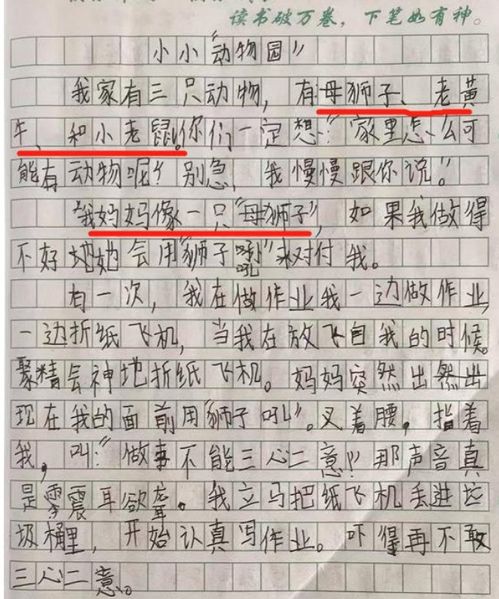 读书破万卷，下笔如有神。
小小“动物园”
我家有三只动物，有母狮子、老黄
牛、和小老鼠。你们一定想：“家里怎么可
能有动物呢？别急，我慢慢跟你说。”
我妈妈像一只“母狮子”，如果我做得
不好她她会用“狮子吼”来对付我。
有一次，我在做作业我一边做作业，
一边折纸飞机，当我在放飞自我的时候。
聚精会神地折纸飞机。妈妈突然出然出
现在我的面前用“狮子吼”。叉着腰，指着
我，叫：“做事不能三心二意？”那声音真
是震耳欲聋。我立马把纸飞机丢进垃
圾桶里，开始认真写作业。吓得再不敢
三心二意。